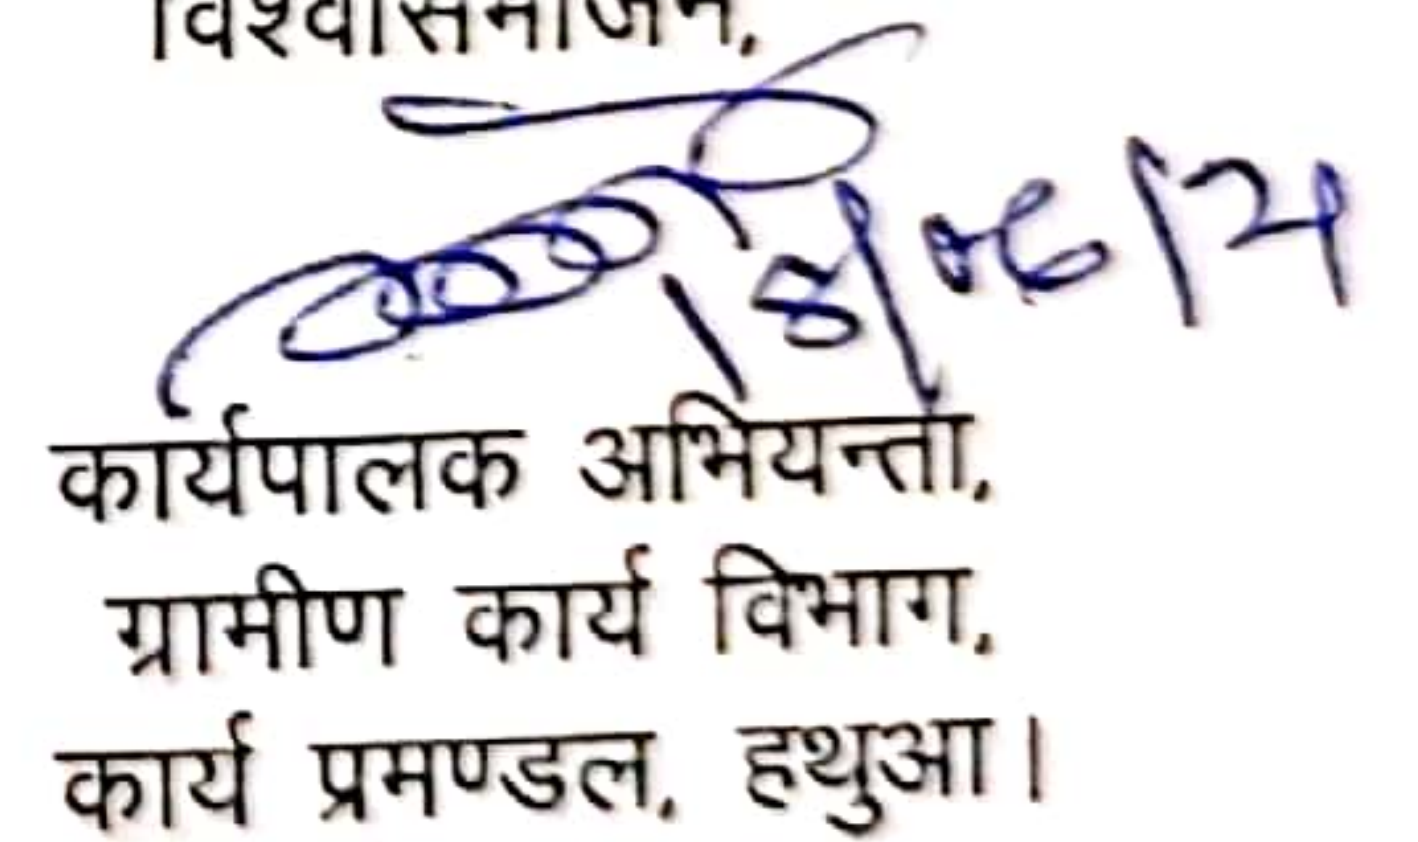 विश्वासभाजन,
18/06/21
कार्यपालक अभियन्ता,
ग्रामीण कार्य विभाग,
कार्य प्रमण्डल, हथुआ।